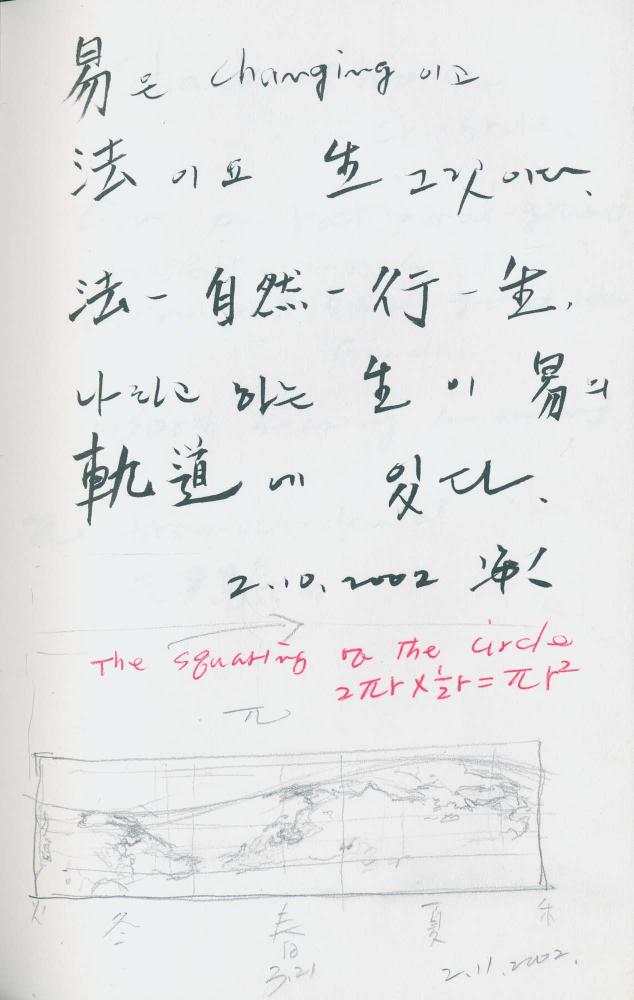 易은 changing 이고
法이요 生 그것이다.
法-自然-行-生,
나라고 하는 生이 易의
軌道에 있다.
2.10.2002
The squaring of the circle
2πr×½r=πr²
π
冬 春 夏
3.21
2.11.2002.